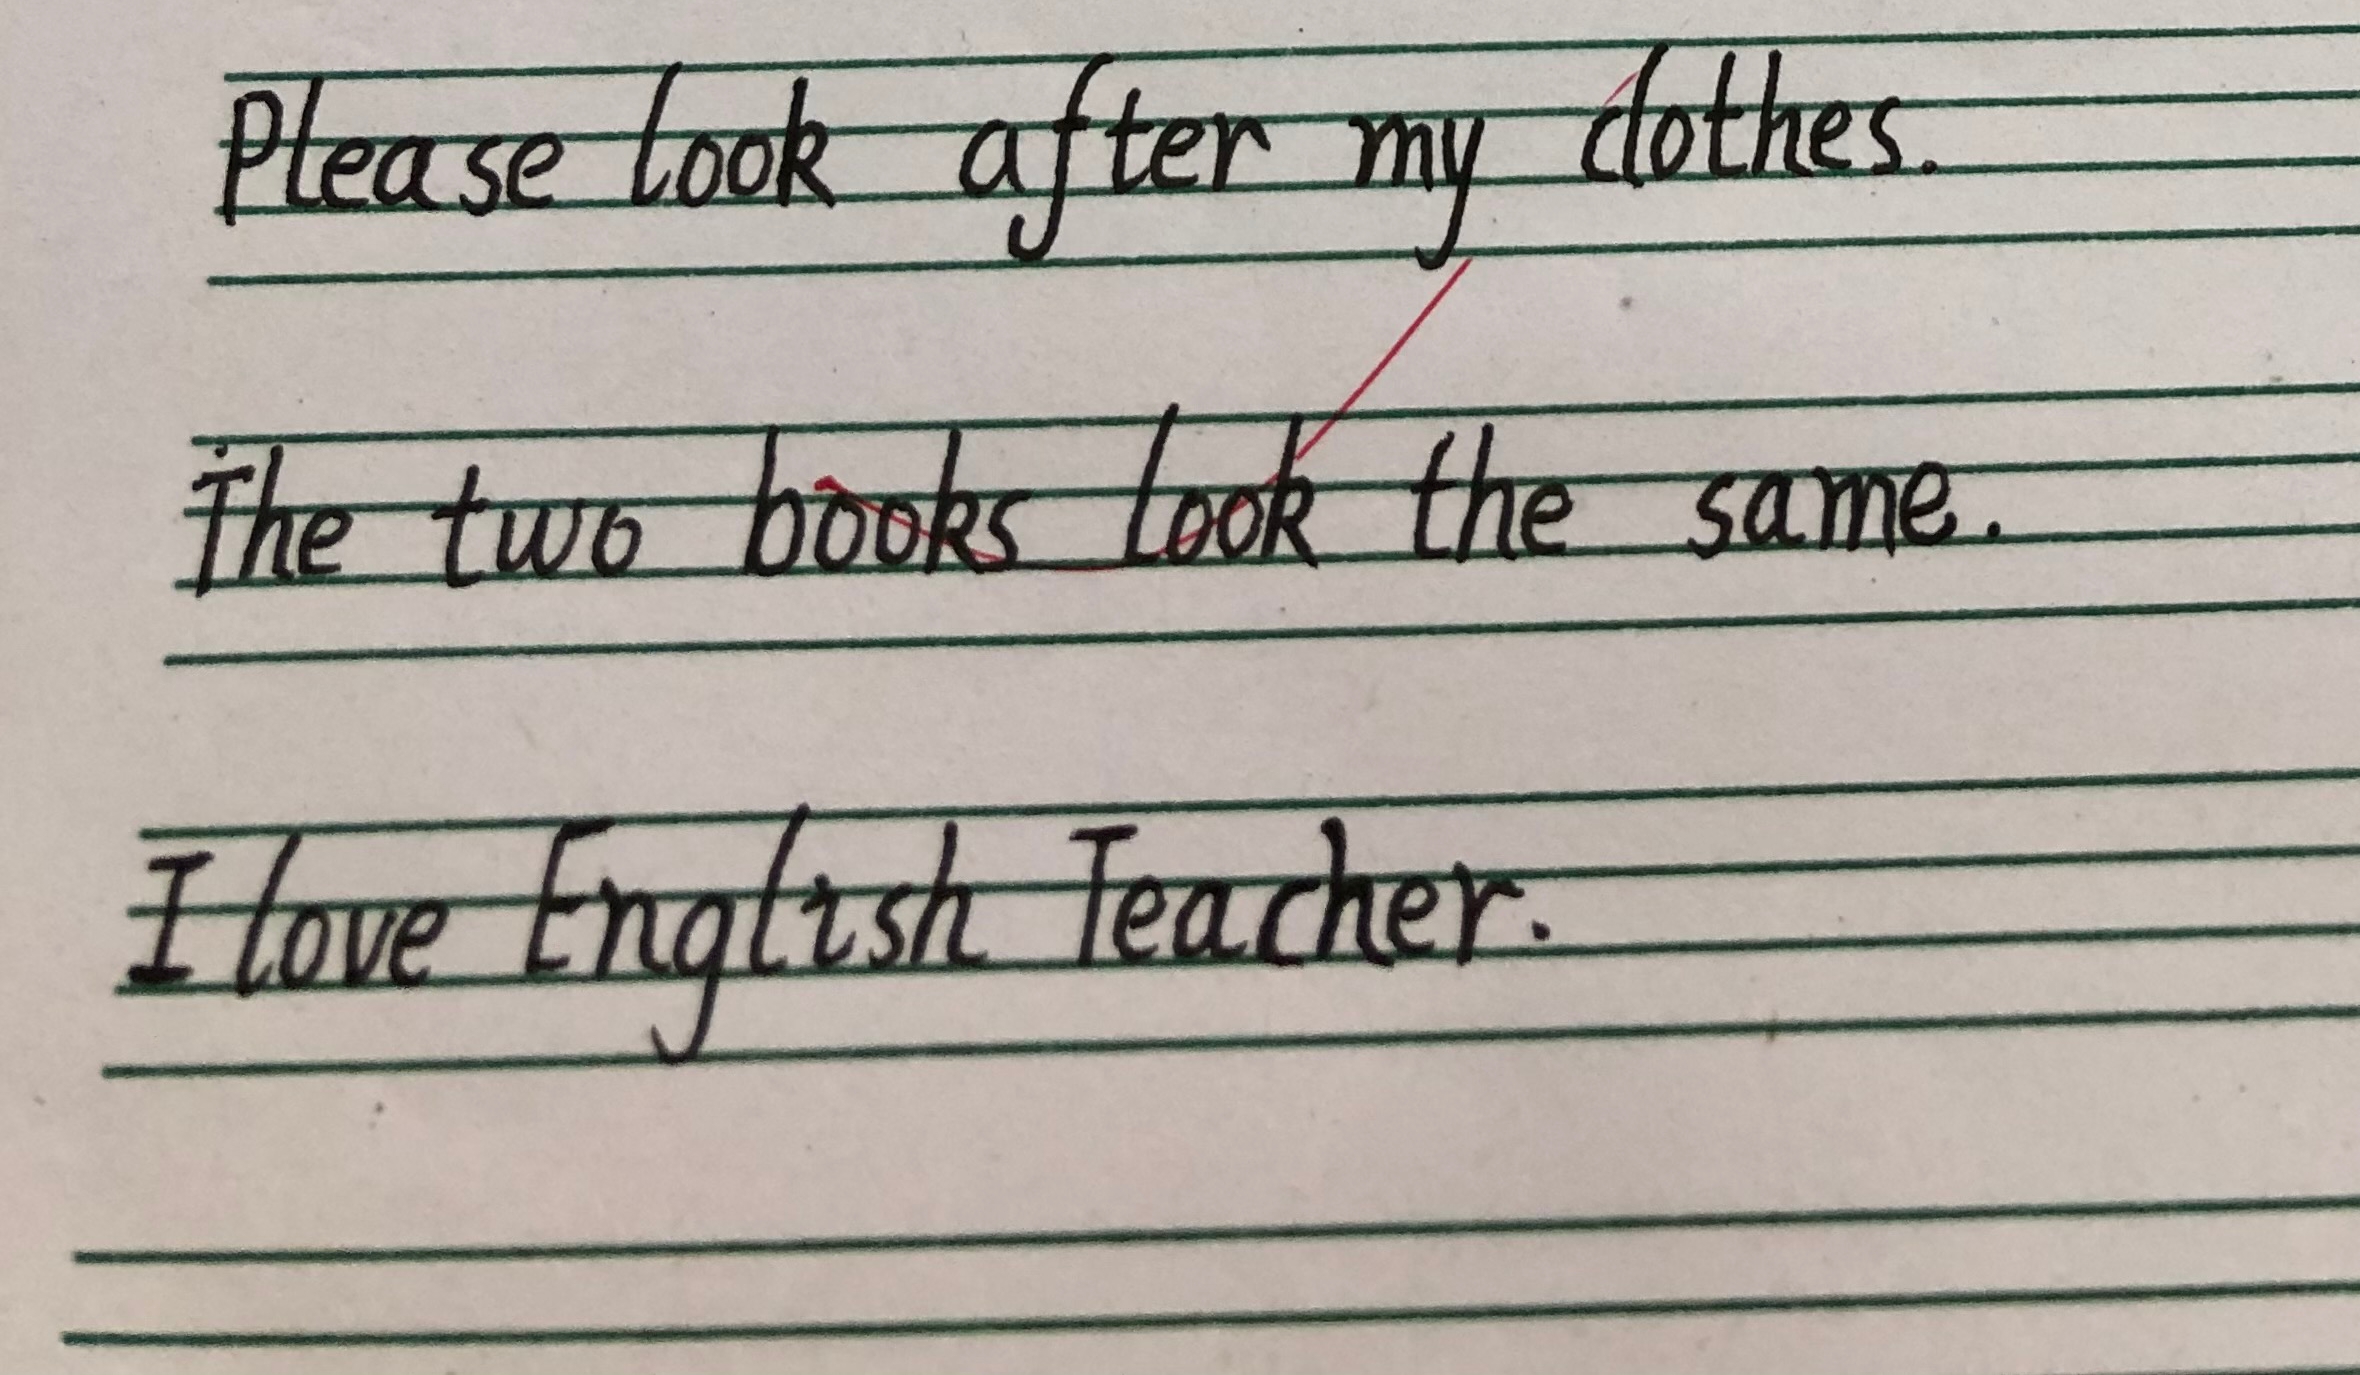 Please look after my clothes.
The two books look the same.
I love English Teacher.